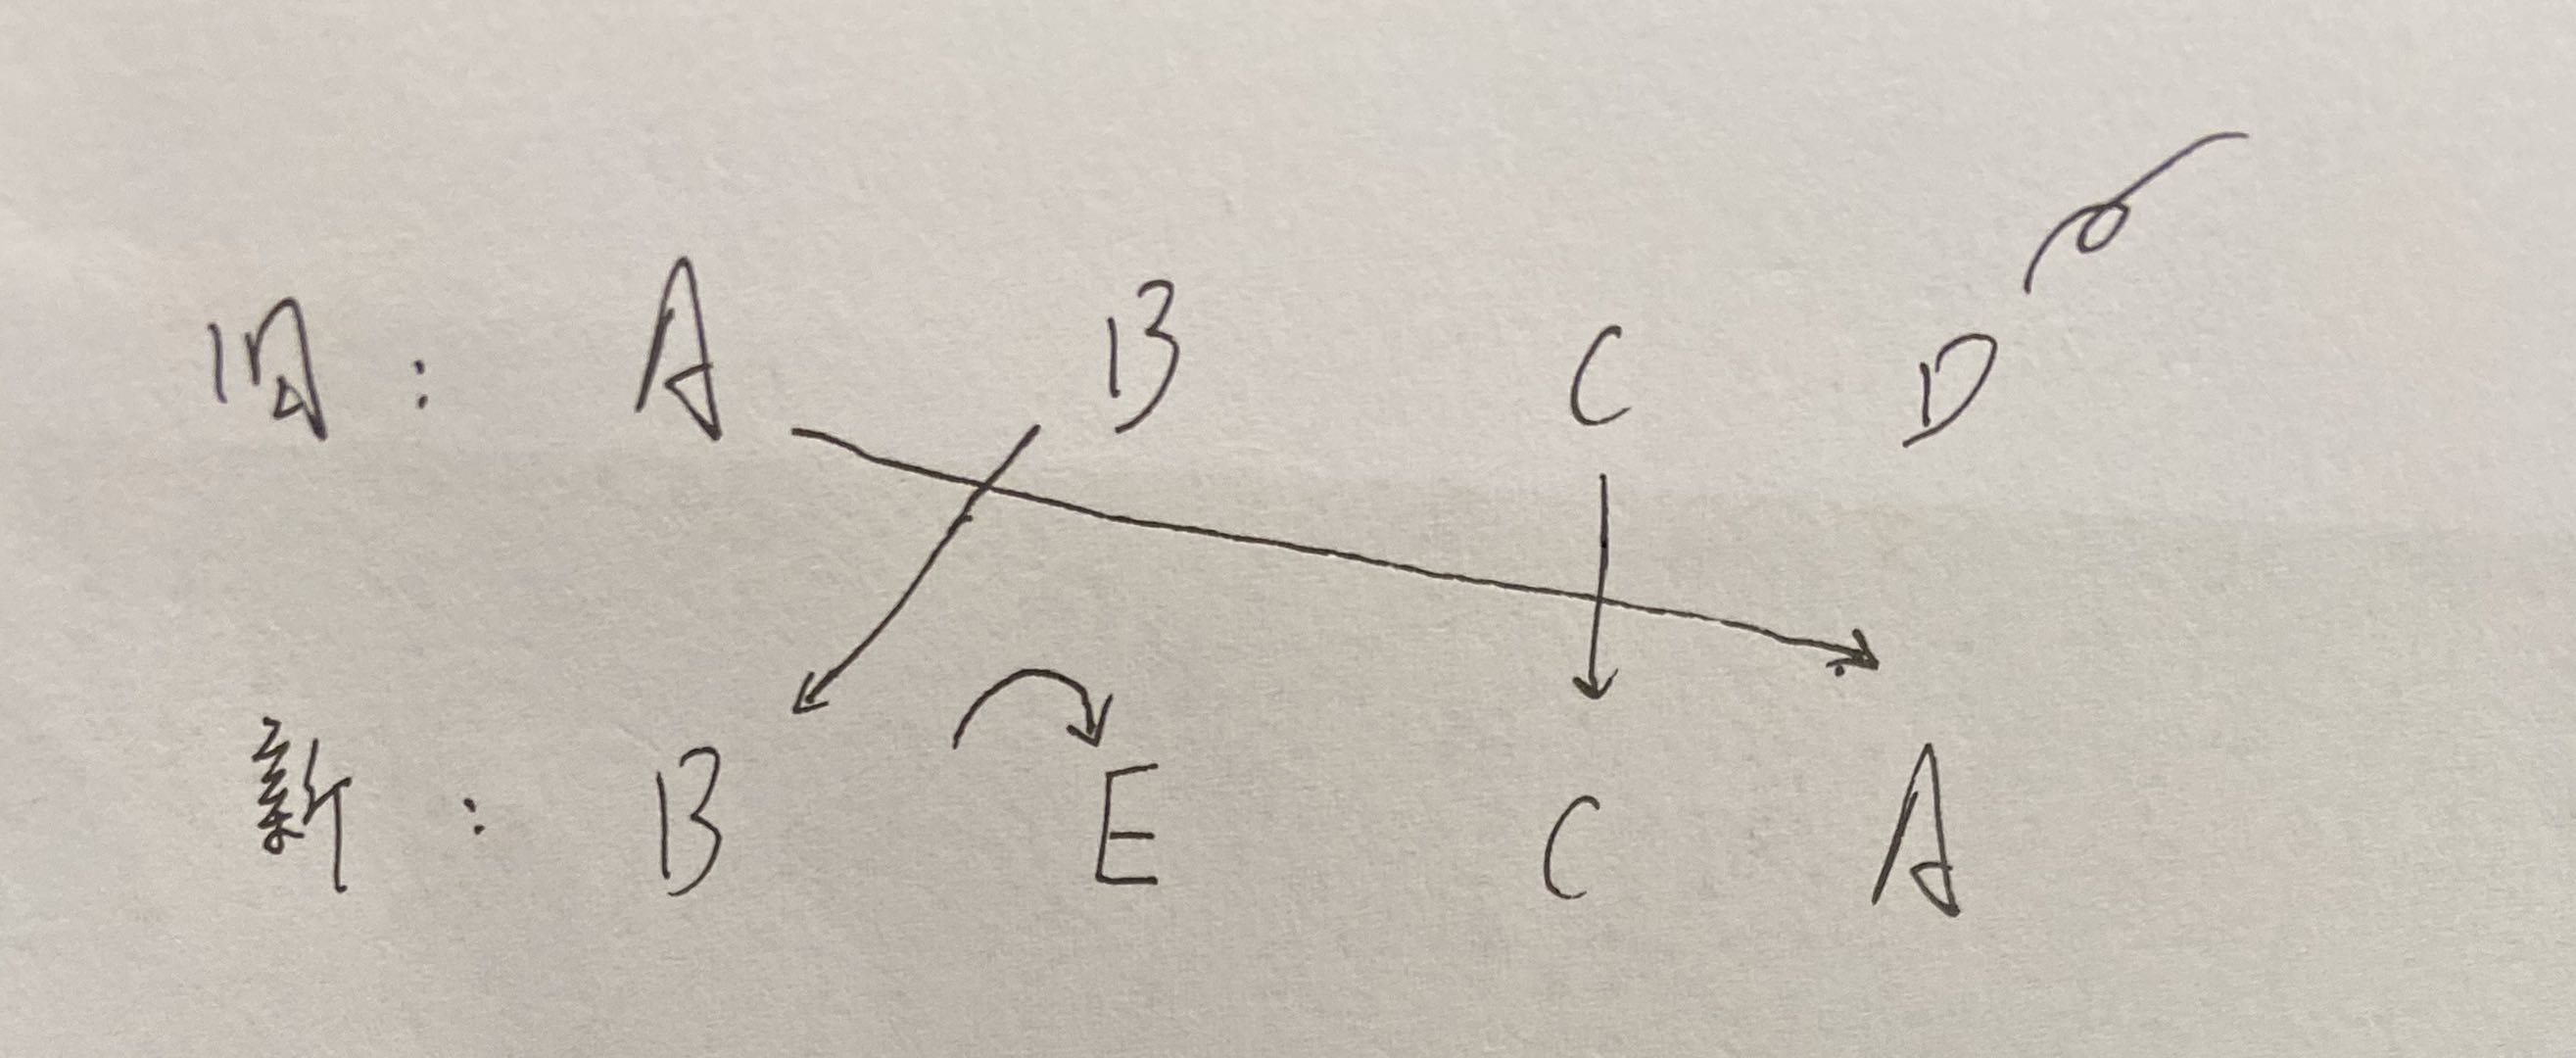 旧: A B C D
新: B E C A